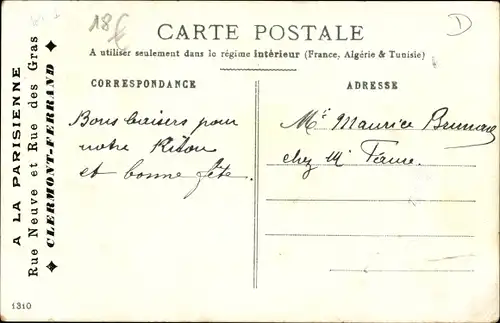 18€
D
CARTE POSTALE
A utiliser seulement dans le régime intérieur (France, Algérie & Tunisie)
CORRESPONDANCE
ADRESSE
Bons baisers pour
notre Kiton
et bonne fête.
Mr Maurice
chez Mr Faure.
A LA PARISIENNE
Rue Neuve et Rue des Gras
✦ CLERMONT-FERRAND ✦
1310